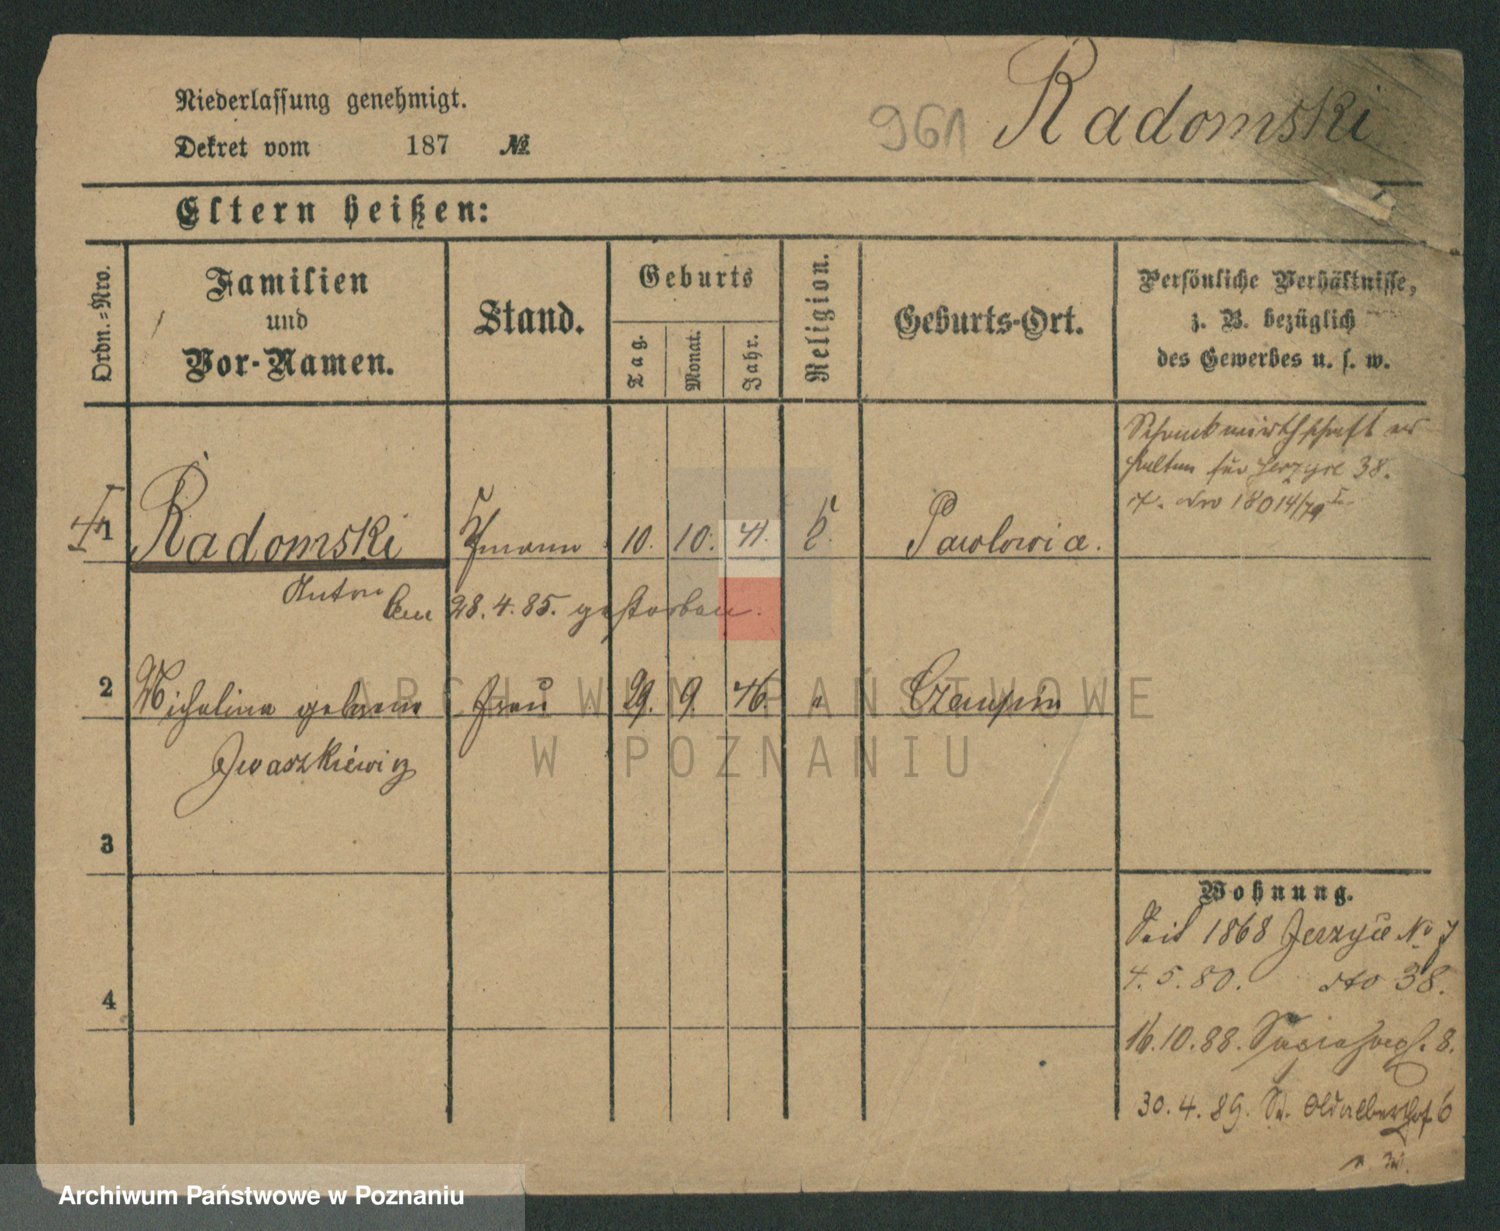 Niederlassung genehmigt.
961 Radomski
Dekret vom 187 №
Eltern heißen:
Ordn.-Nro.
Familien
und
Vor-Namen.
Stand.
Geburts
Tag.
Monat.
Jahr.
Religion.
Geburts-Ort.
Persönliche Verhältnisse,
z. B. bezüglich
des Gewerbes u. s. w.
Schankwirthschaft er
halten für Jerzyce 38.
1 Radomski 10. 10. 41. Pawlowice.
Am 28. 4. 85. gestorben.
2 Michalina geborene Frau 29. 9. 46. Czempin
Iwaszkiewicz
3
4
Wohnung.
Seit 1868 Jerzyce No 7
4. 5. 80. dto 38.
16. 10. 88. 8.
30. 4. 89. St. 6
ARCHIWUM PAŃSTWOWE
W POZNANIU
Archiwum Państwowe w Poznaniu